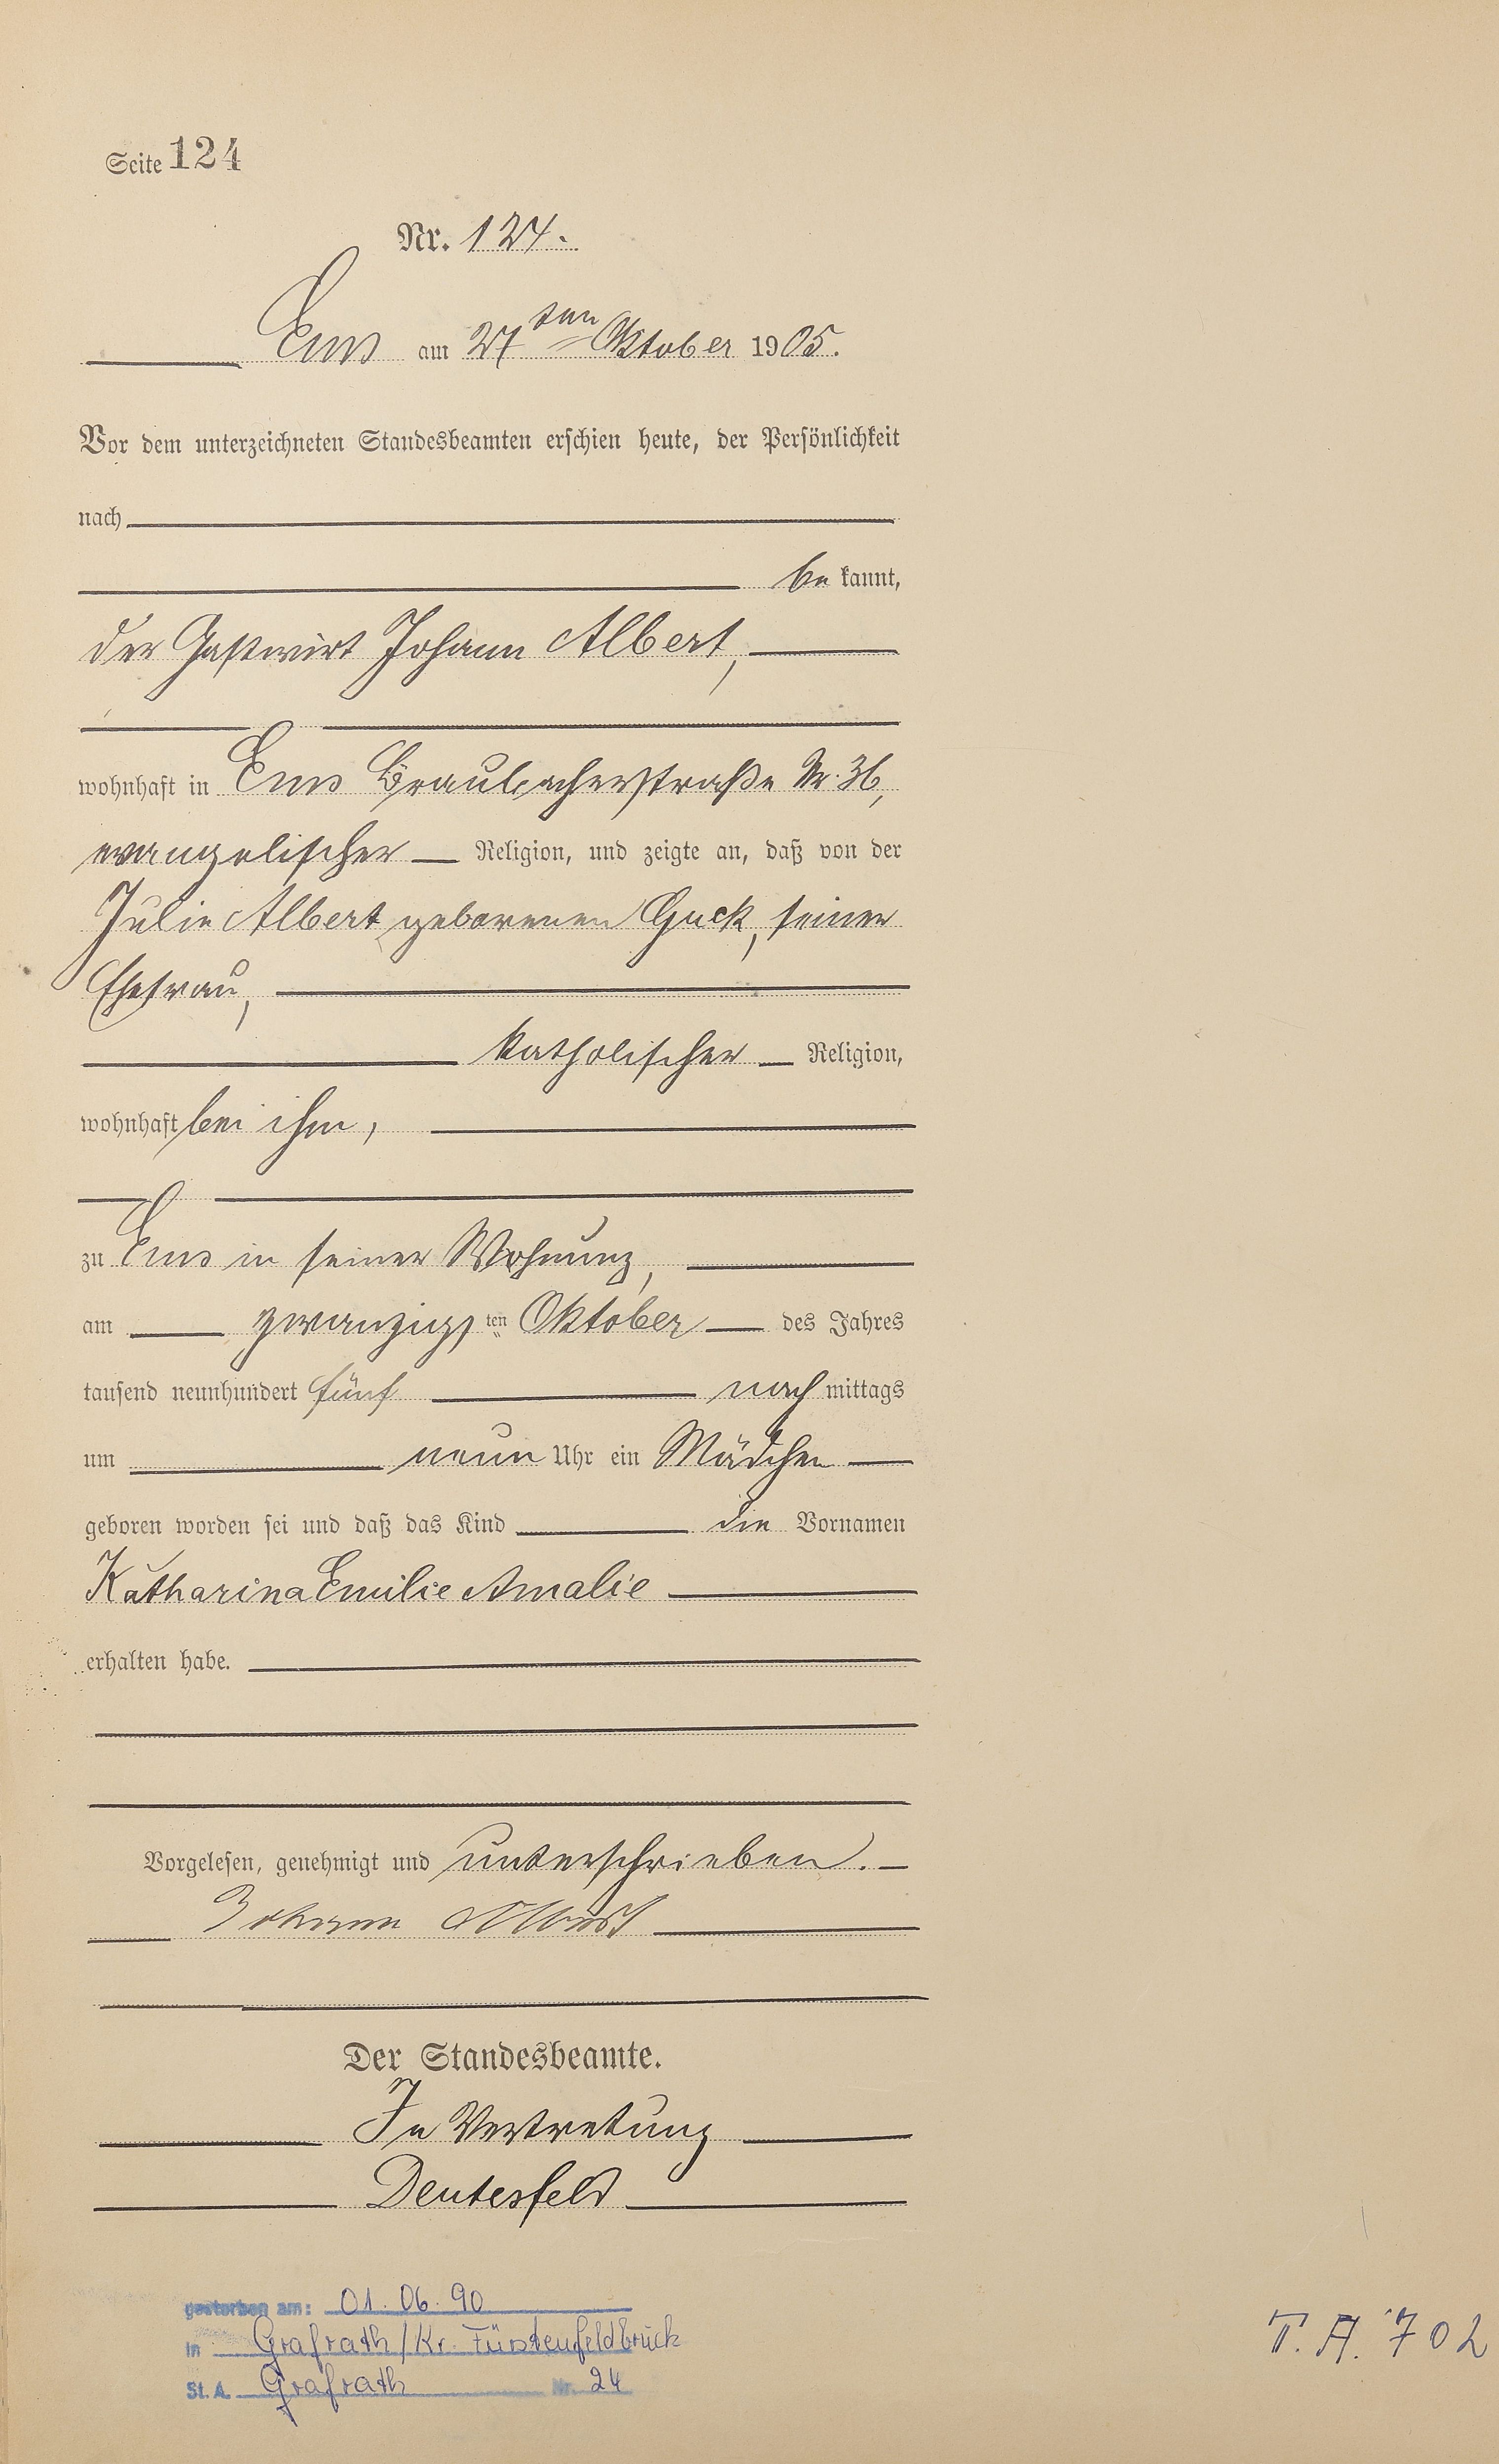 Seite 124
Nr. 124.
Ems am 27ten Oktober 1905.
Vor dem unterzeichneten Standesbeamten erschien heute, der Persönlichkeit
nach
be kannt,
der Gastwirt Johann Albert,
wohnhaft in Ems Braubacherstraße Nr. 36,
evangelischer Religion, und zeigte an, daß von der
Julie Albert geborenen Guck, seiner
Ehefrau,
katholischer Religion,
wohnhaft bei ihm,
zu Ems in seiner Wohnung,
am zwanzigsten Oktober des Jahres
tausend neunhundert fünf nach mittags
um neun Uhr ein Mädchen
geboren worden sei und daß das Kind die Vornamen
Katharina Emilie Amalie
erhalten habe.
Vorgelesen, genehmigt und unterschrieben.
Johann Albert
Der Standesbeamte.
In Vertretung
Deutesfeld
gestorben am: 01.06.90
in Grafrath/Kr. Fürstenfeldbruck
St. A. Grafrath Nr. 24
T. A. 702